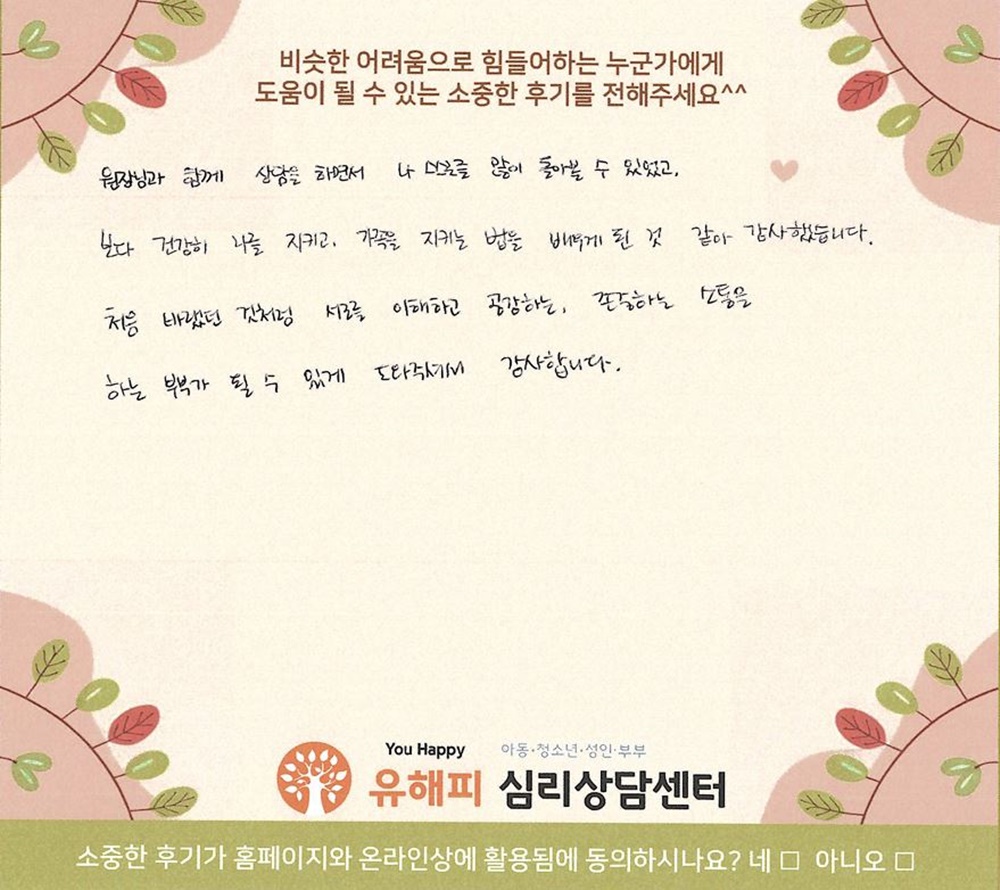 비슷한 어려움으로 힘들어하는 누군가에게
도움이 될 수 있는 소중한 후기를 전해주세요^^
원장님과 함께 상담을 하면서 나 스스로를 많이 돌아볼 수 있었고,
보다 건강히 나를 지키고, 가족을 지키는 법을 배우게 된 것 같아 감사했습니다.
처음 바랬던 것처럼 서로를 이해하고 공감하는, 존중하는 소통을
하는 부부가 될 수 있게 도와주셔서 감사합니다.
You Happy 아동·청소년·성인·부부
유해피 심리상담센터
소중한 후기가 홈페이지와 온라인상에 활용됨에 동의하시나요? 네 □ 아니오 □